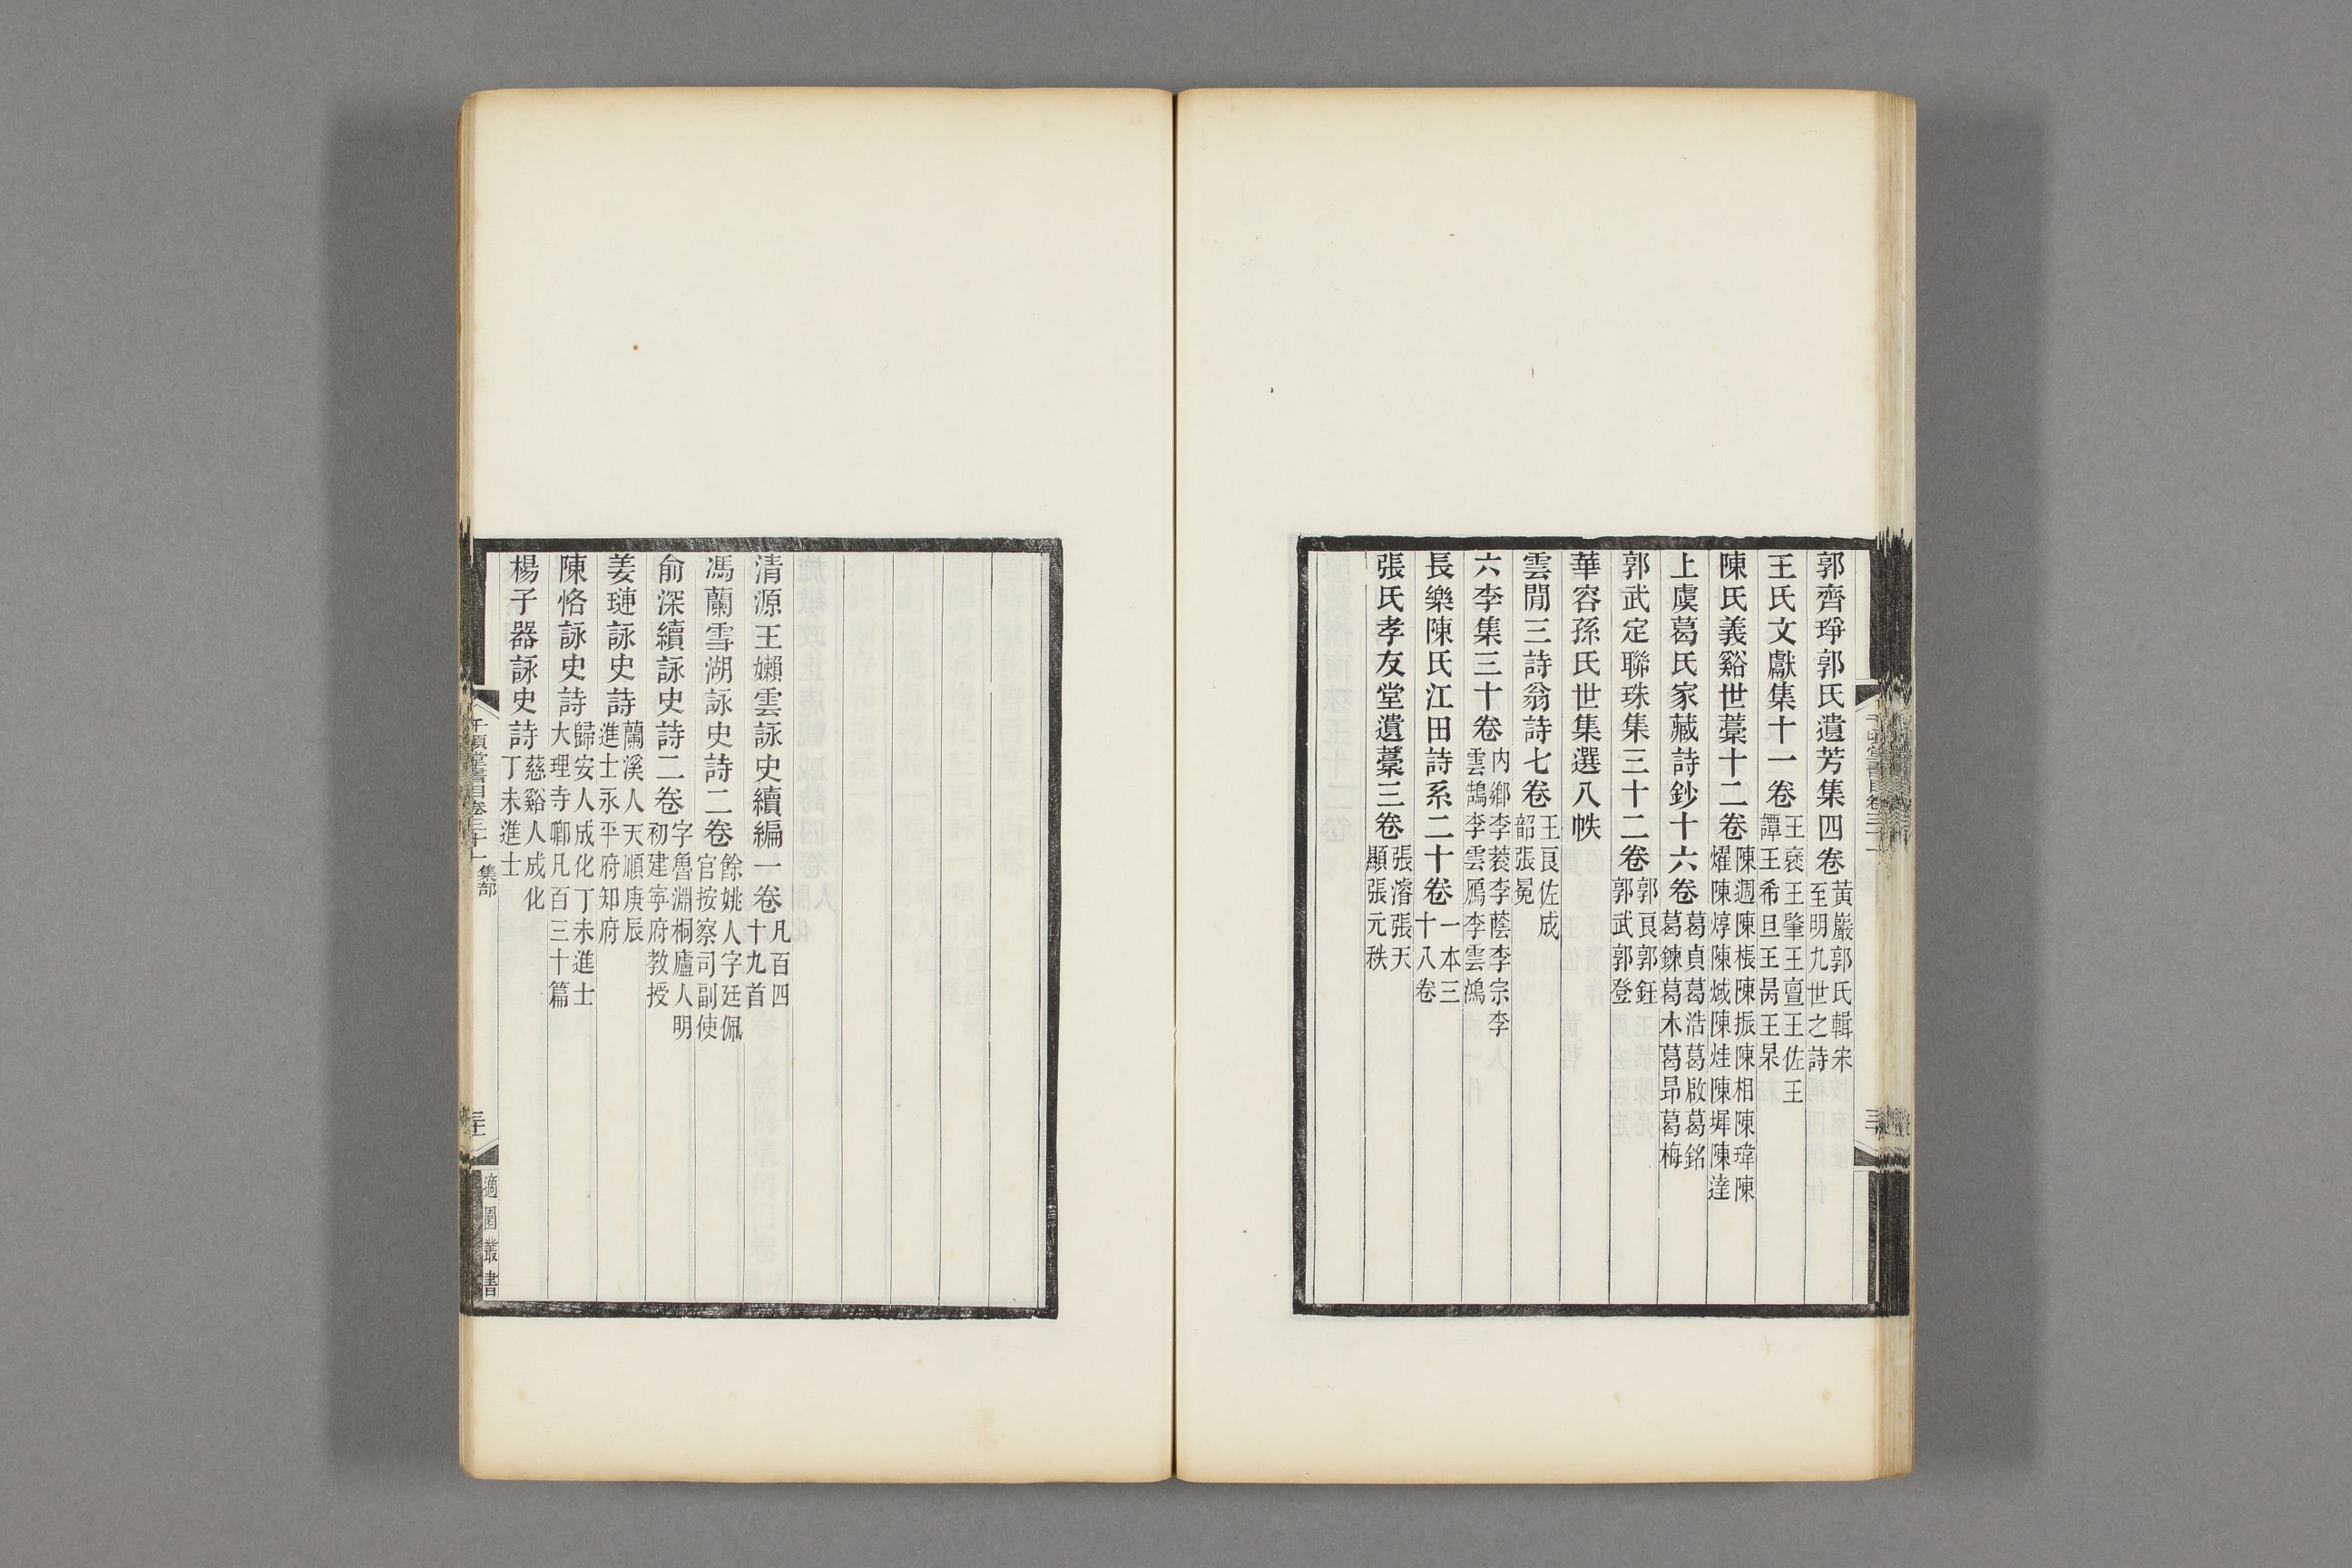 郭齊琤郭氏遺芳集四卷黃巖郭氏輯宋至明九世之詩
王氏文獻集十一卷王裦王肇王亶王佐王譚王希旦王昺王杲
陳氏義谿世藁十二卷陳週陳棖陳振陳相陳瑋陳燿陳焞陳烓陳墀陳達
上虞葛氏家藏詩鈔十六卷葛貞葛浩葛啟葛銘葛鍊葛木葛昂葛梅
郭武定聯珠集三十二卷郭良郭鈺郭武郭登
華容孫氏世集選八帙
雲閒三詩翁詩七卷王良佐成韶張冕
六李集三十卷内鄉李蓘李蔭李宗李雲鵠李雲鴈李雲鴻
長樂陳氏江田詩系二十卷一本三十八卷
張氏孝友堂遺藁三卷張溶張天顯張元秩
清源王嬾雲詠史續編一卷凡百四十九首
馮蘭雪湖詠史詩二卷餘姚人字廷佩官按察司副使
俞深續詠史詩二卷字魯淵桐廬人明初建寧府教授
姜璉詠史詩蘭溪人天順庚辰進士永平府知府
陳恪詠史詩歸安人成化丁未進士大理寺卿凡百三十篇
楊子器詠史詩慈谿人成化丁未進士
千頃堂書目卷三十一 集部
適園叢書